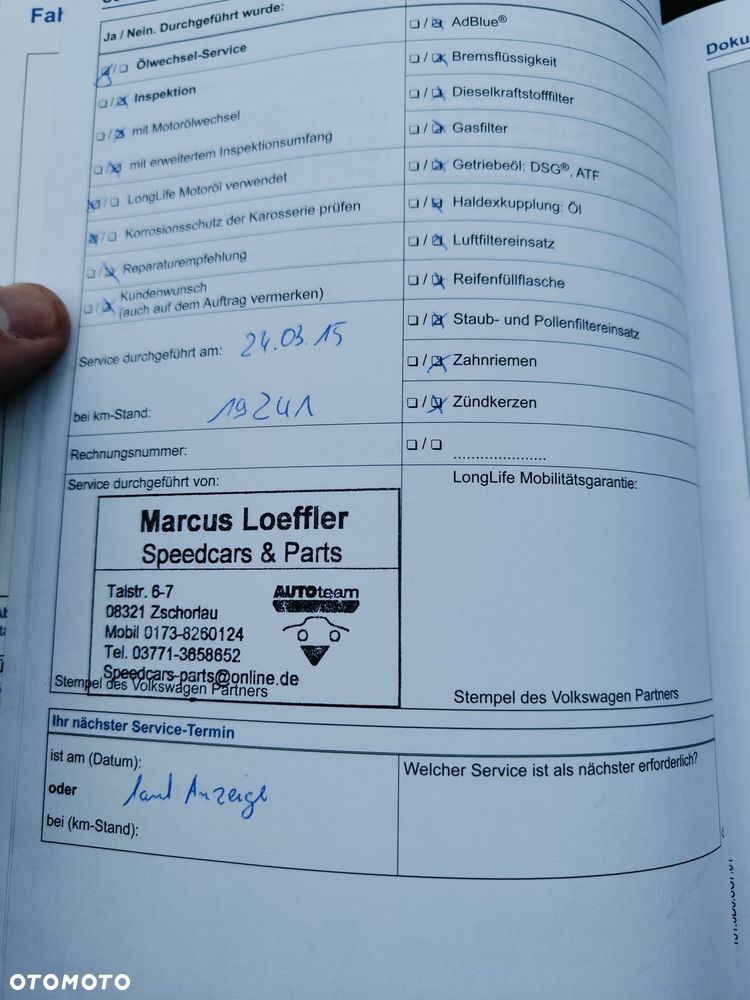 Fah
Ja / Nein. Durchgeführt wurde:
❏/❏ Ölwechsel-Service
❏/❏ Inspektion
❏/❏ mit Motorölwechsel
❏/❏ mit erweitertem Inspektionsumfang
❏/❏ LongLife Motoröl verwendet
❏/❏ Korrosionsschutz der Karosserie prüfen
❏/❏ Reparaturempfehlung
❏/❏ Kundenwunsch
(auch auf dem Auftrag vermerken)
Service durchgeführt am: 24.03.15
bei km-Stand: 19241
Rechnungsnummer:
❏/❏ AdBlue®
❏/❏ Bremsflüssigkeit
❏/❏ Dieselkraftstofffilter
❏/❏ Gasfilter
❏/❏ Getriebeöl: DSG®, ATF
❏/❏ Haldexkupplung: Öl
❏/❏ Luftfiltereinsatz
❏/❏ Reifenfüllflasche
❏/❏ Staub- und Pollenfiltereinsatz
❏/❏ Zahnriemen
❏/❏ Zündkerzen
❏/❏ .....................
Service durchgeführt von:
Marcus Loeffler
Speedcars & Parts
Talstr. 6-7
08321 Zschorlau
Mobil 0173-8260124
Tel. 03771-3658652
Speedcars-parts@online.de
AUTOteam
Stempel des Volkswagen Partners
LongLife Mobilitätsgarantie:
Stempel des Volkswagen Partners
Ihr nächster Service-Termin
ist am (Datum):
oder laut Anzeige
bei (km-Stand):
Welcher Service ist als nächster erforderlich?
Doku
OTOMOTO